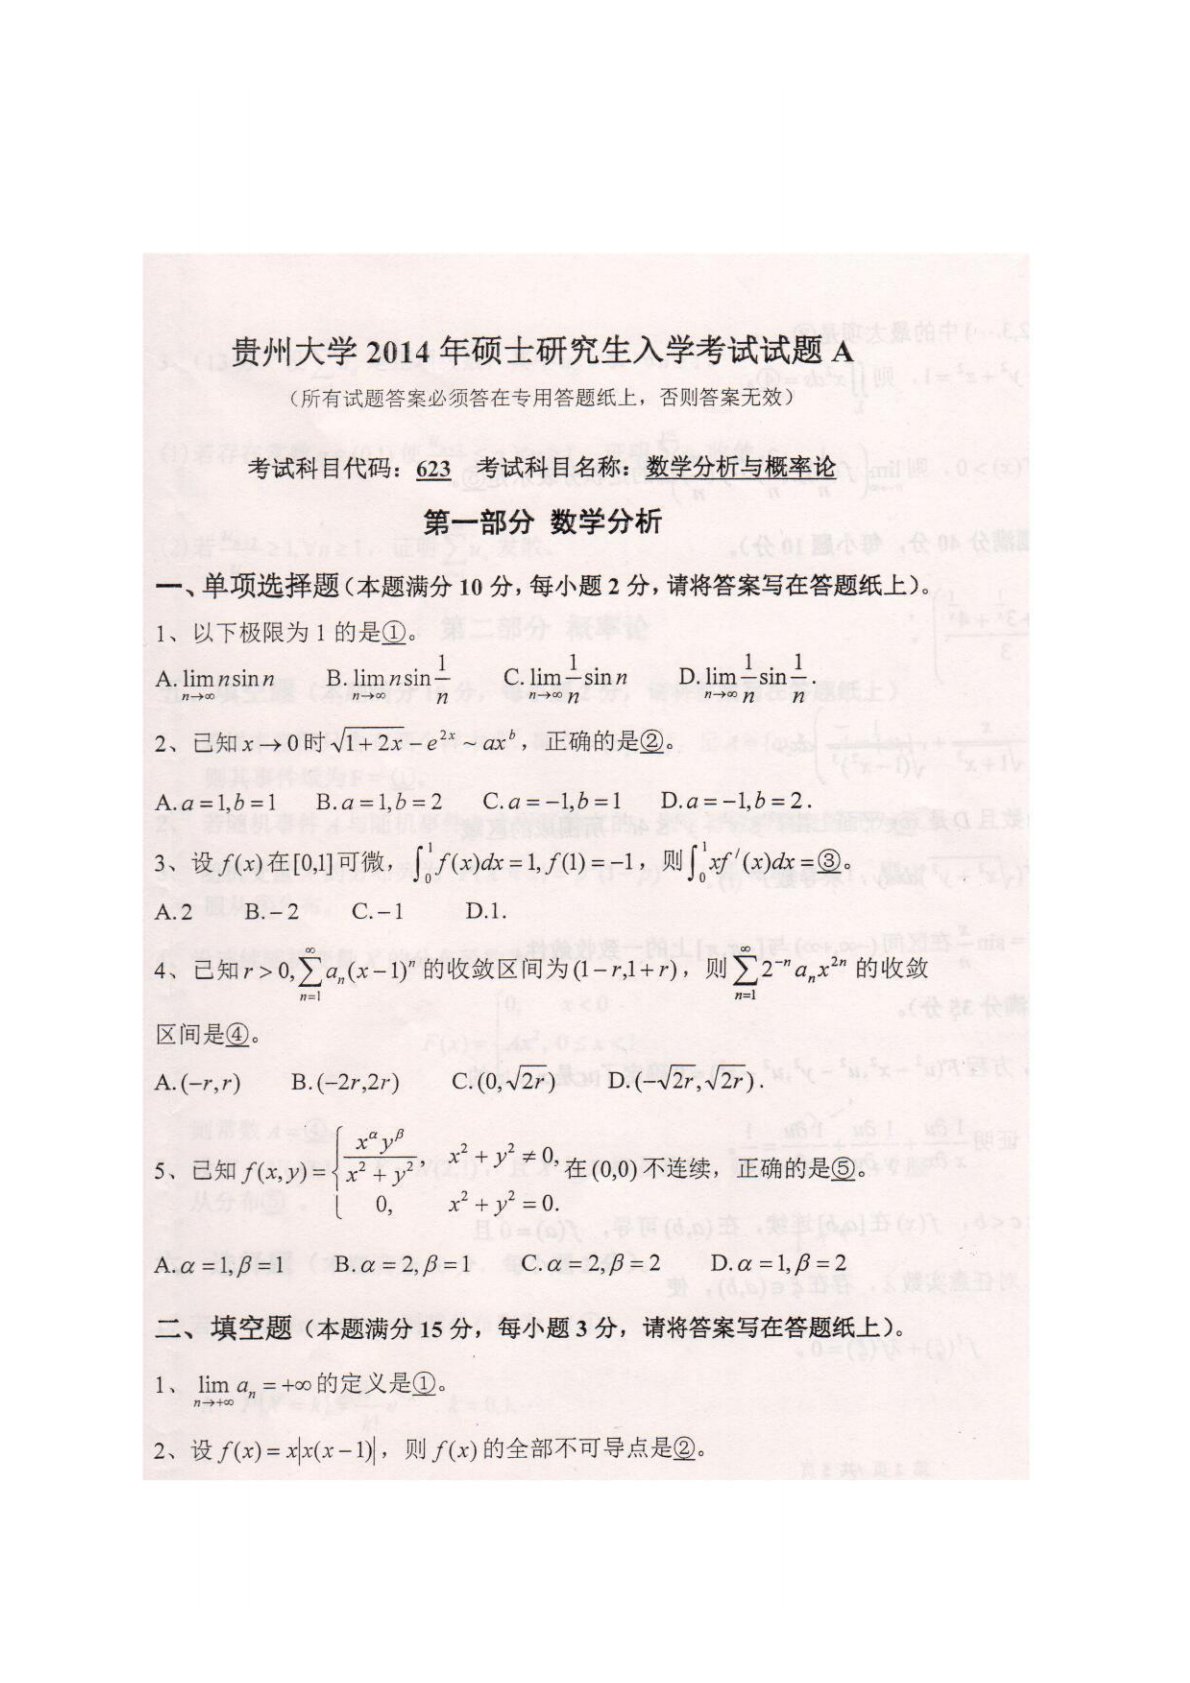 贵州大学 2014 年硕士研究生入学考试试题 A
（所有试题答案必须答在专用答题纸上，否则答案无效）
考试科目代码：623 考试科目名称：数学分析与概率论
第一部分 数学分析
一、单项选择题（本题满分 10 分，每小题 2 分，请将答案写在答题纸上）。
1、以下极限为 1 的是①。
A. lim_{n→∞} n sin n B. lim_{n→∞} n sin 1/n C. lim_{n→∞} 1/n sin n D. lim_{n→∞} 1/n sin 1/n.
2、已知 x→0 时 √(1+2x) − e^{2x} ~ ax^b，正确的是②。
A. a=1,b=1 B. a=1,b=2 C. a=−1,b=1 D. a=−1,b=2.
3、设 f(x) 在[0,1]可微，∫_0^1 f(x)dx=1, f(1)=−1，则∫_0^1 xf′(x)dx=③。
A. 2 B. −2 C. −1 D. 1.
4、已知 r>0, ∑_{n=1}^∞ a_n(x−1)^n 的收敛区间为 (1−r,1+r)，则 ∑_{n=1}^∞ 2^{−n}a_n x^{2n} 的收敛
区间是④。
A. (−r,r) B. (−2r,2r) C. (0,√(2r)) D. (−√(2r),√(2r)).
5、已知 f(x,y)={ x^α y^β/(x²+y²), x²+y²≠0, 在 (0,0) 不连续，正确的是⑤。
0, x²+y²=0.
A. α=1,β=1 B. α=2,β=1 C. α=2,β=2 D. α=1,β=2
二、填空题（本题满分 15 分，每小题 3 分，请将答案写在答题纸上）。
1、 lim_{n→+∞} a_n=+∞ 的定义是①。
2、设 f(x)=x|x(x−1)|，则 f(x) 的全部不可导点是②。